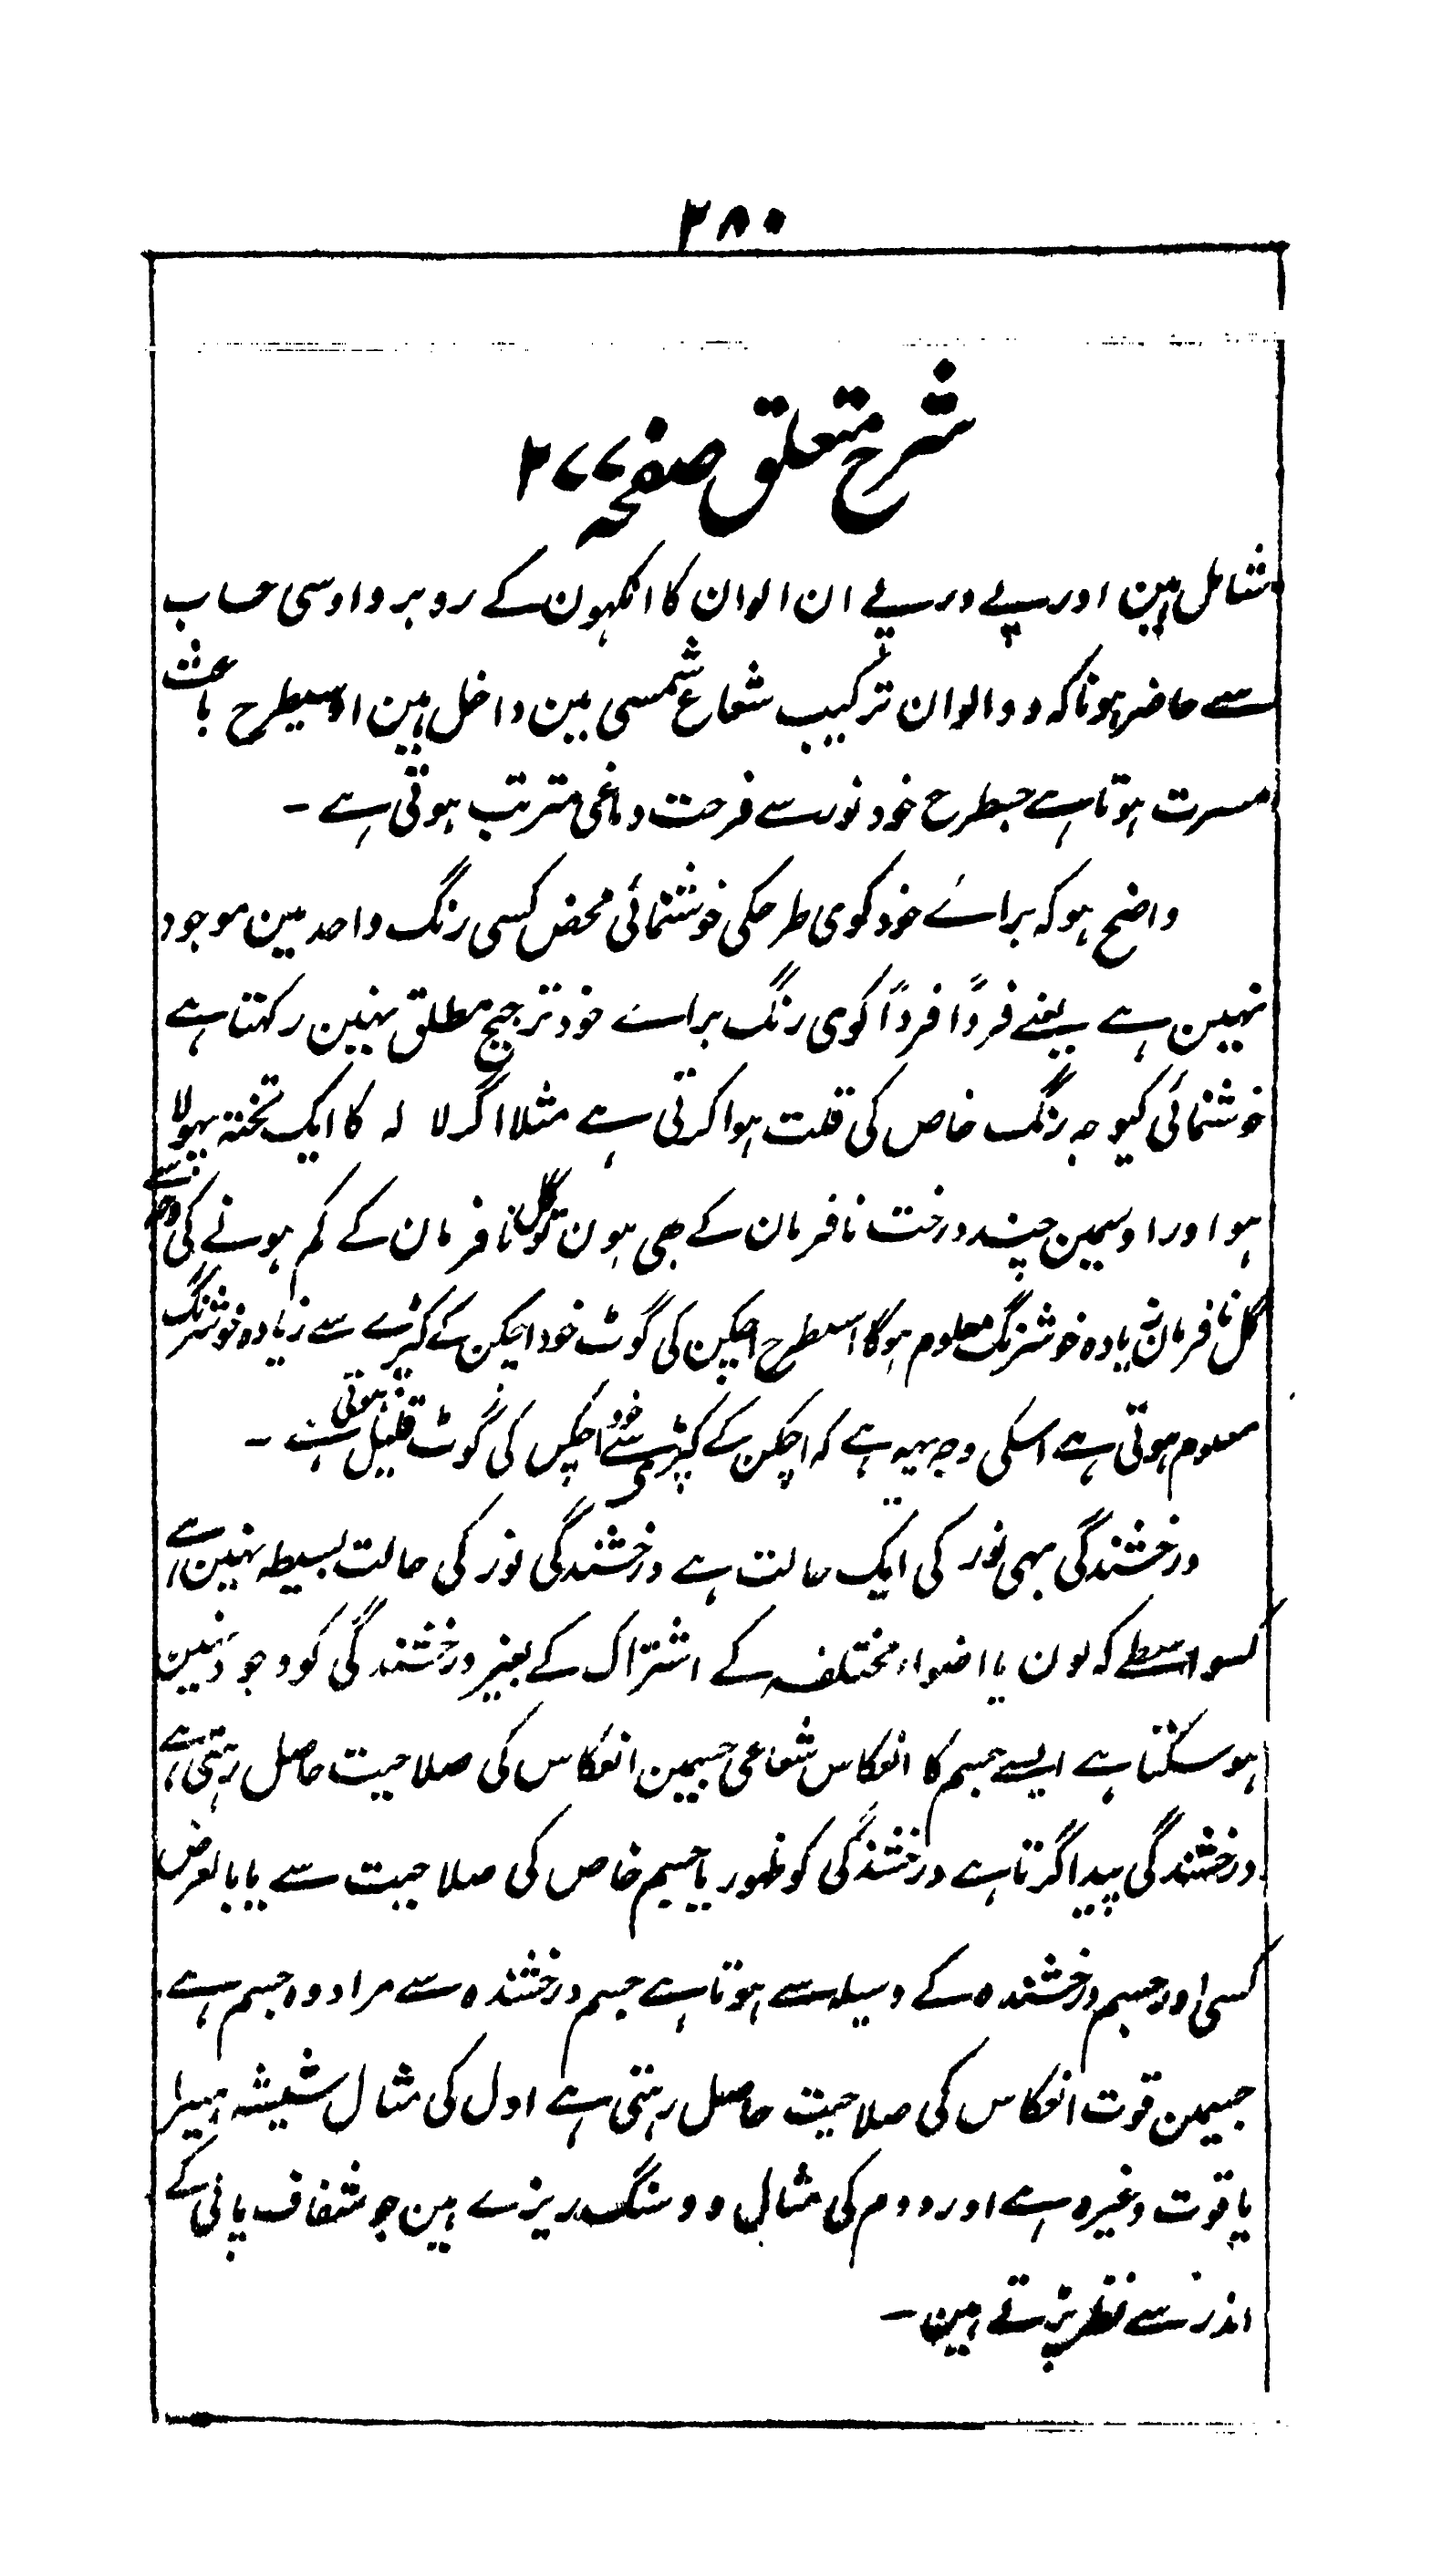 ۲۸۰
شرح متعلق صفحہ ۲۷۷
شامل ہین اور پے در پے ان الوان کا انکہون کے روبرو اوسی حساب
سے حاضر ہونا کہ وو الوان ترکیب شعاع شمسی مین داخل ہین اوسیطرح باعث
مسرت ہوتا ہے جسطرح خود نور سے فرحت دماغی مترتب ہوتی ہے -
واضح ہو کہ براے خود کوی طرحکی خوشنمائی محض کسی رنگ واحد مین موجود
نہین ہے یعنے فرداً فرداً کوی رنگ براے خود ترجیح مطلق نہین رکہتا ہے
خوشنمائی کیوجہ رنگ خاص کی قلت ہوا کرتی ہے مثلا اگر لا لہ کا ایک تختہ پہولا
ہو اور اوسمین چند درخت نافرمان کے بھی ہون تو گل نافرمان کے کم ہونے کی وجہ سے
گل نافرمان زیادہ خوشرنگ معلوم ہوگا اسطرح اچکن کی گوٹ خود اچکن کے کپڑے سے زیادہ خوشرنگ
معلوم ہوتی ہے اسکی وجہ یہہ ہے کہ اچکن کے کپڑے سے خود اچکن کی گوٹ قلیل ہوتی ہے -
درخشندگی بہی نور کی ایک حالت ہے درخشندگی نور کی حالت بسیطہ نہین ہے
کسواسطے کہ لون یا اضواء مختلفہ کے اشتراک کے بغیر درخشندگی کو وجود نہین
ہو سکتا ہے ایسے جسم کا انعکاس شعاعی جسمین انعکاس کی صلاحیت حاصل رہتی ہے
درخشندگی پیدا کرتا ہے درخشندگی کو ظہور یا جسم خاص کی صلاحیت سے یا بالعرض
کسی اور جسم درخشندہ کے وسیلہ سے ہوتا ہے جسم درخشندہ سے مراد وہ جسم ہے
جسمین قوت انعکاس کی صلاحیت حاصل رہتی ہے اول کی مثال شیشہ ہیرا
یاقوت وغیرہ ہے اور دوم کی مثال وو سنگ ریزے ہین جو شفاف پانی کے
اندر سے نظر پڑتے ہین -